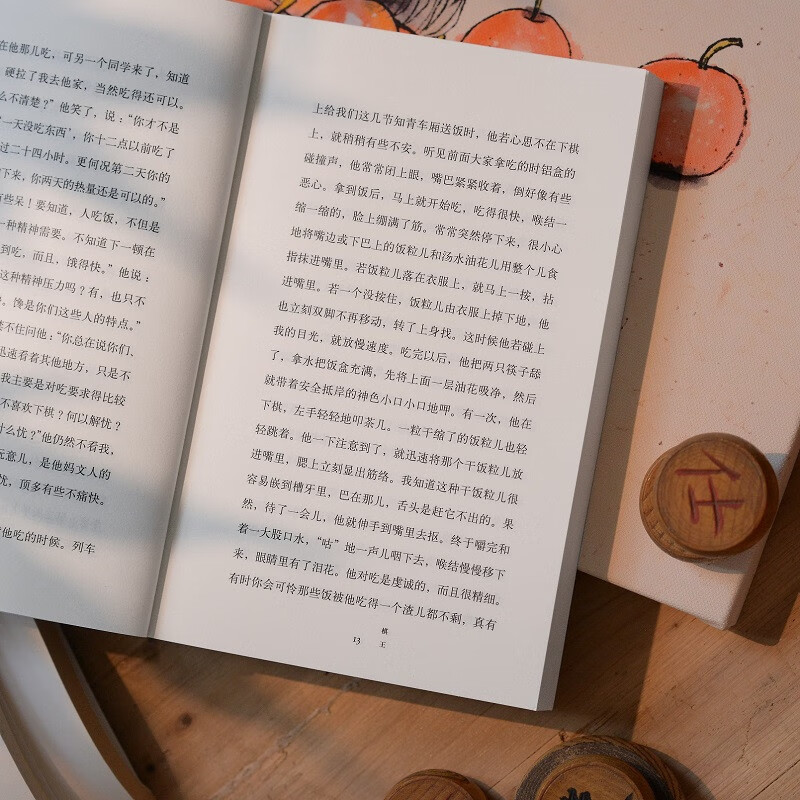 在他那儿吃，可另一个同学来了，知道
硬拉了我去他家，当然吃得还可以。
么不清楚？”他笑了，说：“你才不是
‘一天没吃东西’，你十二点以前吃了
过二十四小时。更何况第二天你的
下来，你两天的热量还是可以的。”
有些呆！要知道，人吃饭，不但是
一种精神需要。不知道下一顿在
到吃，而且，饿得快。”他说：
这种精神压力吗？有，也只不
。馋是你们这些人的特点。”
不住问他：“你总在说你们、
迅速看着其他地方，只是不
我主要是对吃要求得比较
不喜欢下棋？何以解忧？
什么忧？”他仍然不看我，
玩意儿，是他妈文人的
忧，顶多有些不痛快。
他吃的时候。列车
上给我们这几节知青车厢送饭时，他若心思不在下棋
上，就稍稍有些不安。听见前面大家拿吃的时铝盒的
碰撞声，他常常闭上眼，嘴巴紧紧收着，倒好像有些
恶心。拿到饭后，马上就开始吃，吃得很快，喉结一
缩一缩的，脸上绷满了筋。常常突然停下来，很小心
地将嘴边或下巴上的饭粒儿和汤水油花儿用整个儿食
指抹进嘴里。若饭粒儿落在衣服上，就马上一按，拈
进嘴里。若一个没按住，饭粒儿由衣服上掉下地，他
也立刻双脚不再移动，转了上身找。这时候他若碰上
我的目光，就放慢速度。吃完以后，他把两只筷子舔
了，拿水把饭盒充满，先将上面一层油花吸净，然后
就带着安全抵岸的神色小口小口地呷。有一次，他在
下棋，左手轻轻地叩茶几。一粒干缩了的饭粒儿也轻
轻跳着。他一下注意到了，就迅速将那个干饭粒儿放
进嘴里，腮上立刻显出筋络。我知道这种干饭粒儿很
容易嵌到槽牙里，巴在那儿，舌头是赶它不出的。果
然，待了一会儿，他就伸手到嘴里去抠。终于嚼完和
着一大股口水，“咕”地一声儿咽下去，喉结慢慢移下
来，眼睛里有了泪花。他对吃是虔诚的，而且很精细。
有时你会可怜那些饭被他吃得一个渣儿都不剩，真有
13
棋王
仕